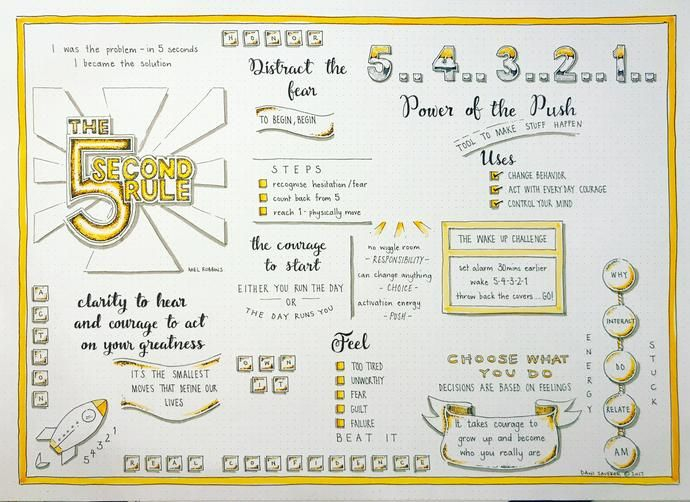 I was the problem - in 5 seconds
I became the solution
HONOR
Distract the
fear
TO BEGIN, BEGIN
5...4...3...2...1...
Power of the Push
TOOL TO MAKE STUFF HAPPEN
Uses
CHANGE BEHAVIOR
ACT WITH EVERYDAY COURAGE
CONTROL YOUR MIND
THE
5 SECOND
RULE
MEL ROBBINS
STEPS
recognise hesitation/fear
count back from 5
reach 1 - physically move
the courage
to start
EITHER YOU RUN THE DAY
OR
THE DAY RUNS YOU
no wiggle room
- RESPONSIBILITY -
can change anything
- CHOICE -
activation energy
- PUSH -
THE WAKE UP CHALLENGE
set alarm 30mins earlier
wake 5-4-3-2-1
throw back the covers...GO!
WHY
INTERACT
DO
RELATE
AM
ENERGY
STUCK
ACTION
clarity to hear
and courage to act
on your greatness
IT'S THE SMALLEST
MOVES THAT DEFINE OUR
LIVES
OWN
IT
Feel
TOO TIRED
UNWORTHY
FEAR
GUILT
FAILURE
BEAT IT
CHOOSE WHAT
YOU DO
DECISIONS ARE BASED ON FEELINGS
It takes courage to
grow up and become
who you really are
5 4 3 2 1
REAL CONFIDENCE
DANI SAVEKER © 2017